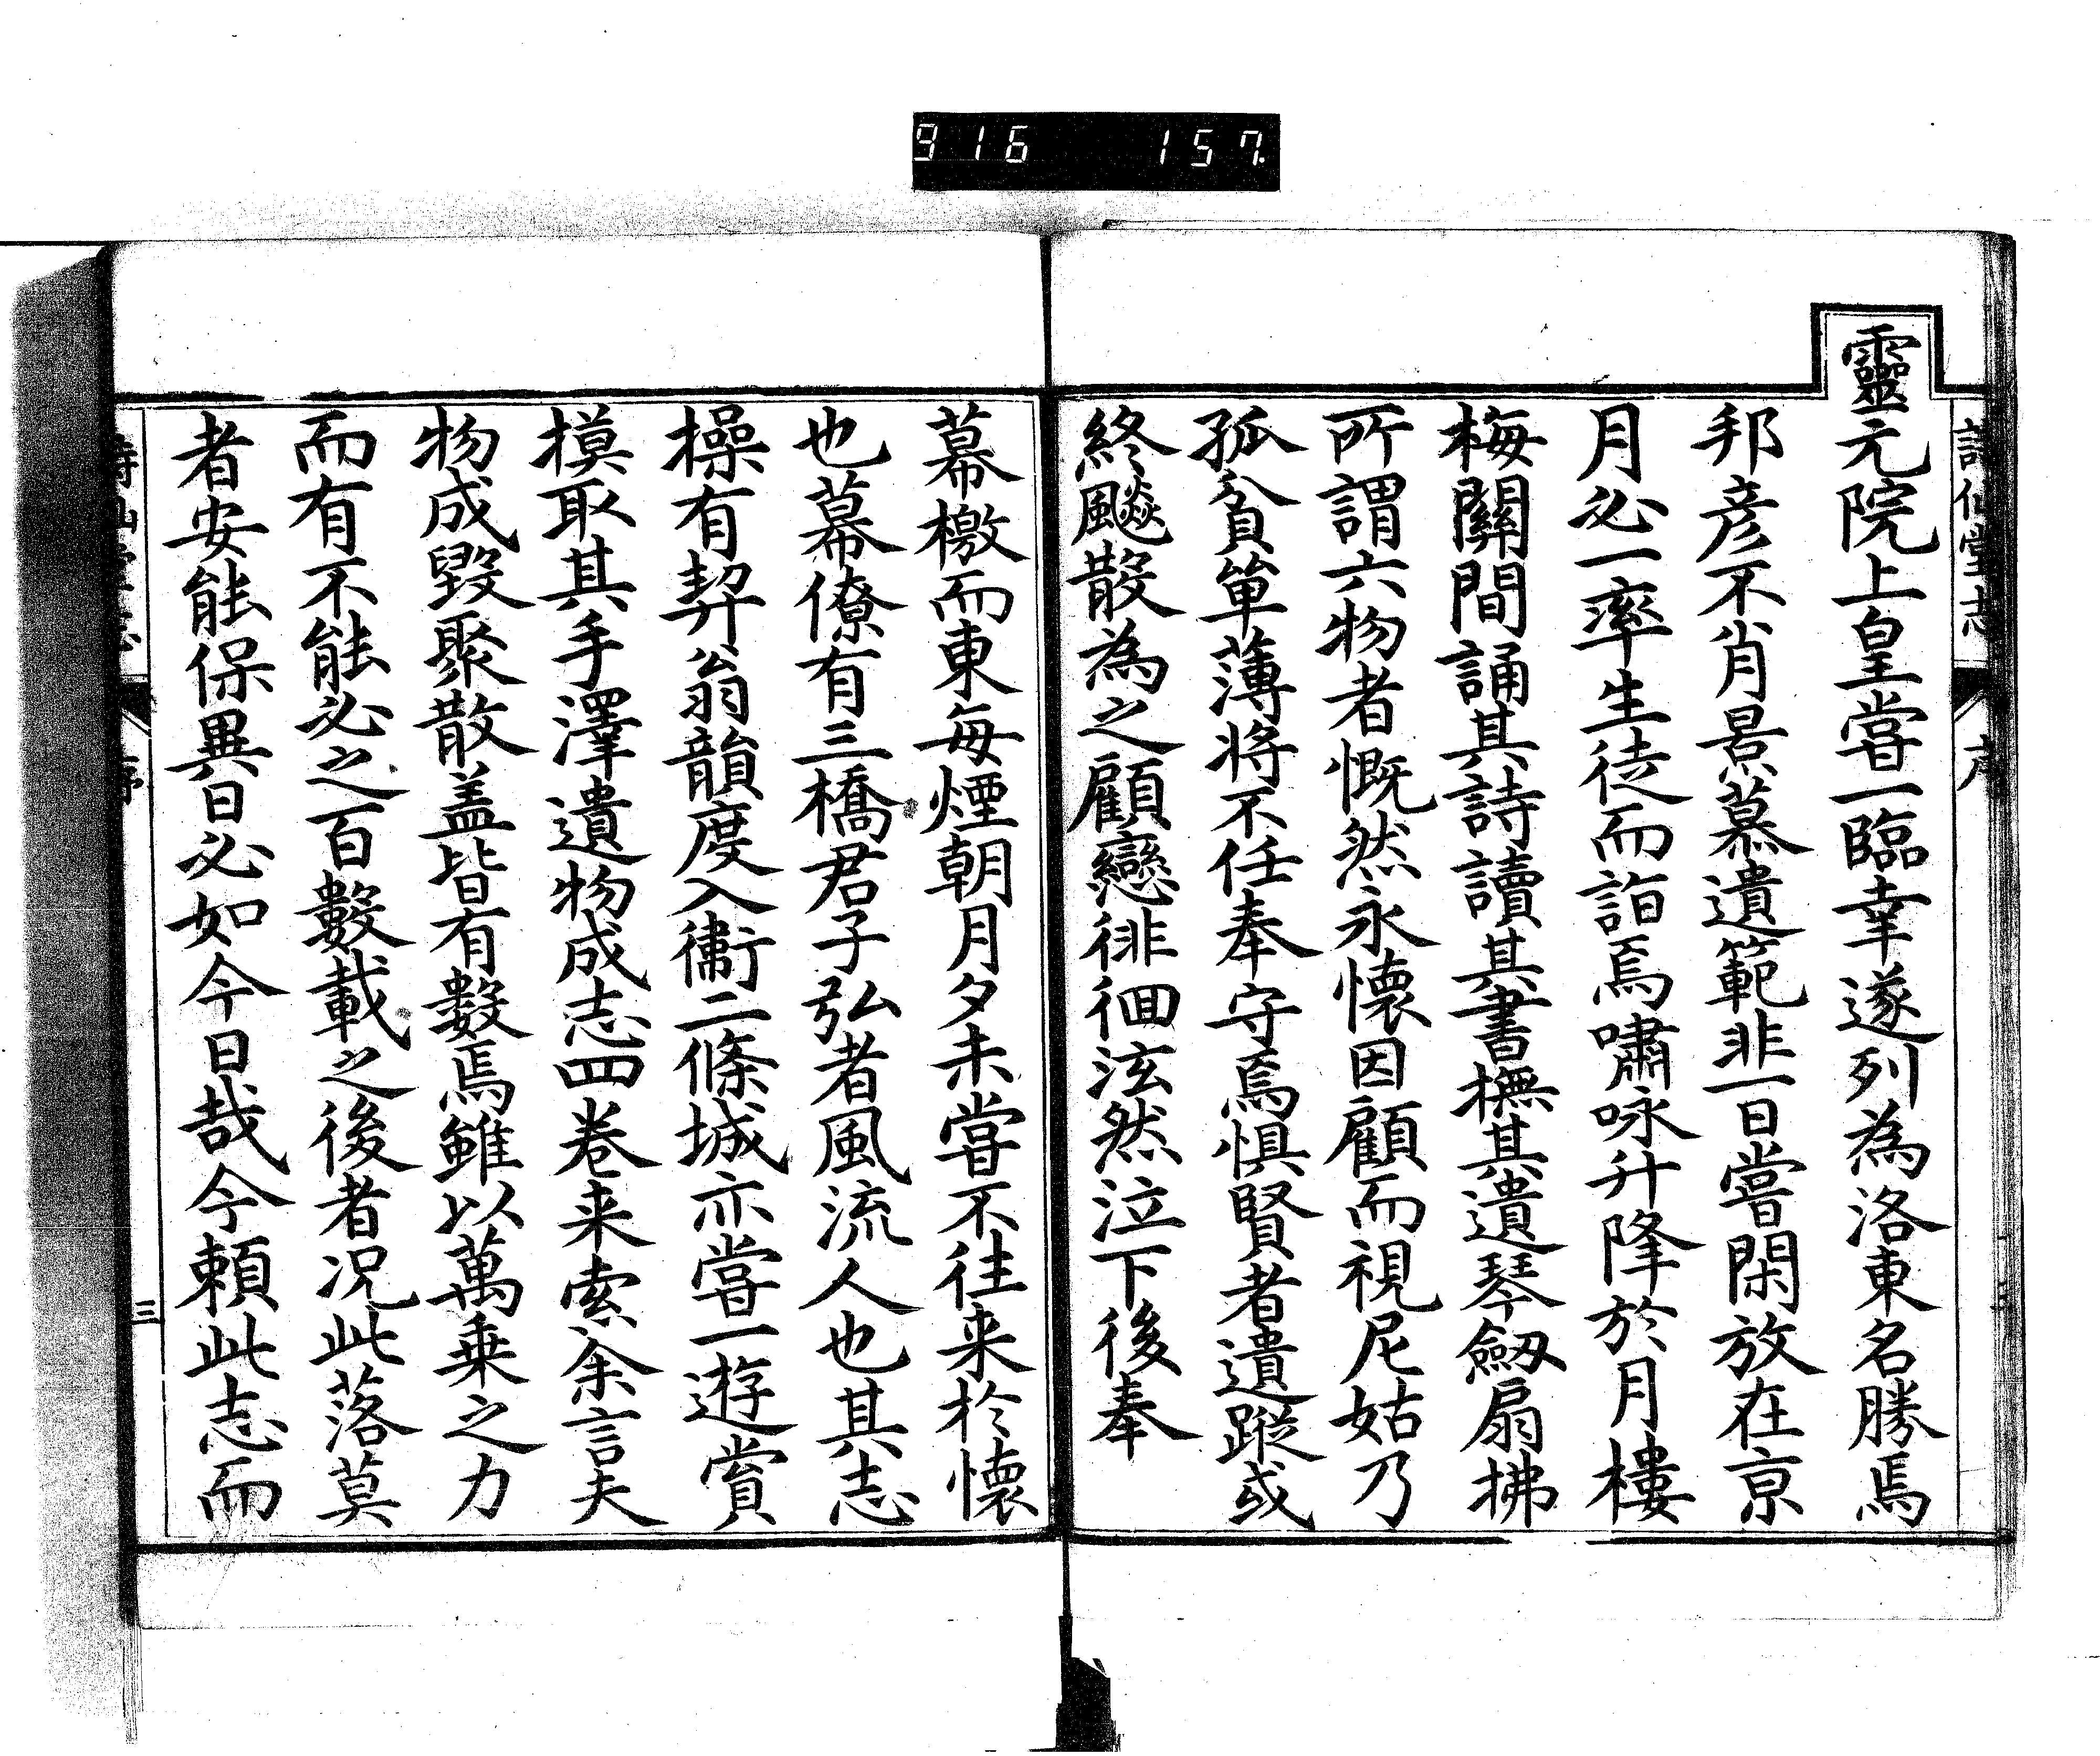 916 157.
詩仙堂志 序
靈元院上皇嘗一臨幸遂列為洛東名勝焉
邦彦不肖景慕遺範非一日嘗閑放在京
月必一率生徒而詣焉嘯咏升降於月樓
梅關間誦其詩讀其書撫其遺琴劔扇拂
所謂六物者慨然永懷因顧而視尼姑乃
孤貧單薄將不任奉守焉惧賢者遺蹤或
終飈散為之顧戀徘徊泫然泣下後奉
幕檄而東毎煙朝月夕未嘗不往来於懷
也幕僚有三橋君子弘者風流人也其志
操有契翁韻度入衞二條城亦嘗一遊賞
摸取其手澤遺物成志四巻来索余言夫
物成毀聚散盖皆有數焉雖以萬乗之力
而有不能必之百數載之後者况此落莫
者安能保異日必如今日哉今頼此志而
詩仙堂志 序 三